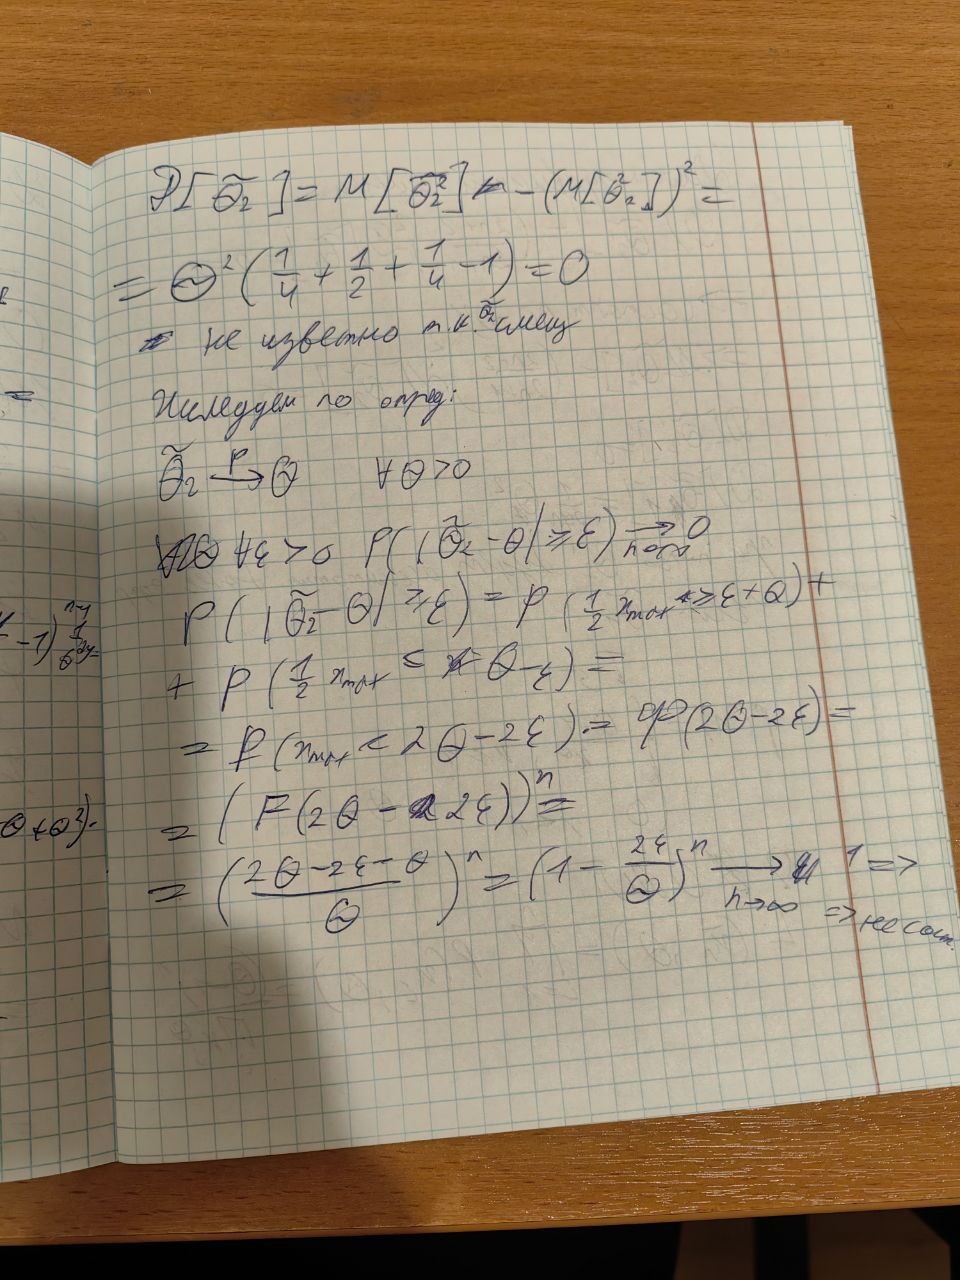 D[θ̃₂] = M[θ̃₂²] - (M[θ̃₂])² =
= θ²(1/4 + 1/2 + 1/4 - 1) = 0
не известно т.к. θ̃₂ смещ
Исследуем по опред:
θ̃₂ →ᵖ θ ∀θ>0
∀ε>0 P(|θ̃₂ - θ| ≥ ε) → 0 n→∞
P(|θ̃₂ - θ| ≥ ε) = P(1/2 xₘₐₓ ≥ ε + θ) +
+ P(1/2 xₘₐₓ < θ - ε) =
= P(xₘₐₓ < 2θ - 2ε) = φ(2θ - 2ε) =
= (F(2θ - 2ε))ⁿ =
= ((2θ - 2ε - θ)/θ)ⁿ = (1 - 2ε/θ)ⁿ → n→∞ 1 =>
=> не сост.
-1)
θ + θ²)·